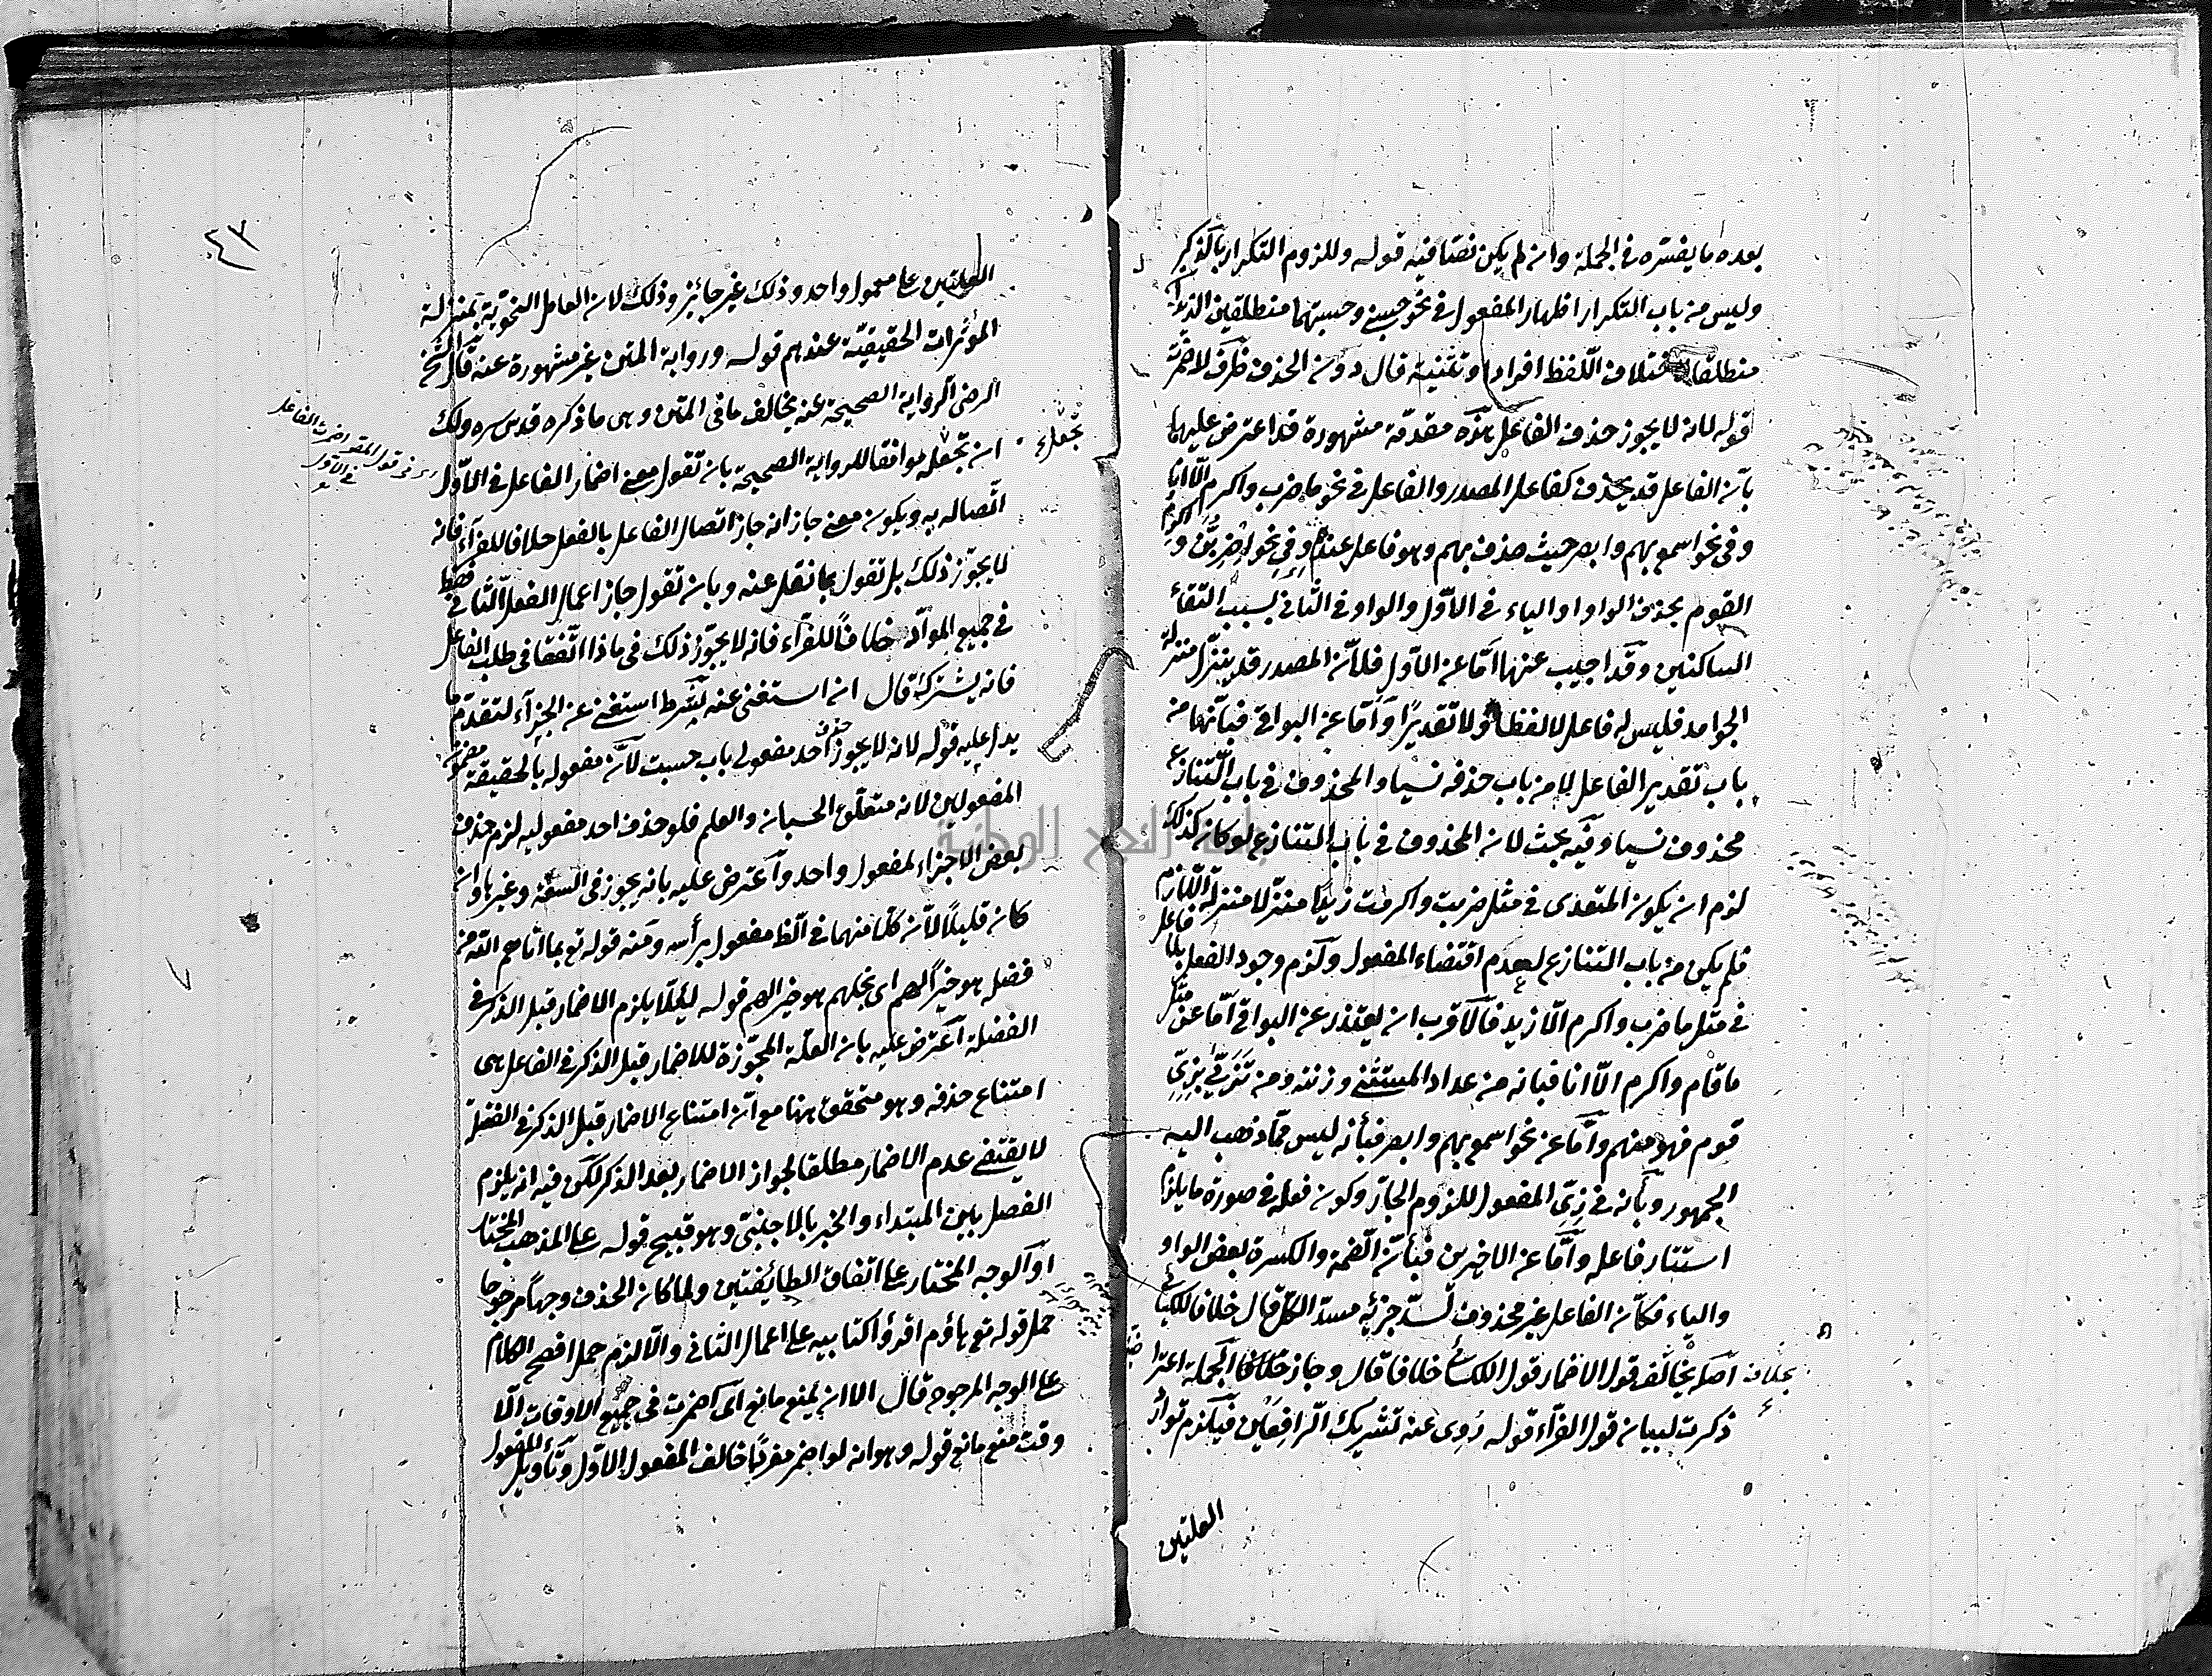 بعده ما يفسّره في الجملة وان لم يكن نصّا فيه قوله وللزوم التكرار بالذكر
وليس من باب التكرار اظهار المفعول في نحو حسبني وحسبتهما منطلقين الزيدان
منطلقا لاختلاف اللّفظ افرادا وتثنية قال دون الحذف ظرف لاضمرت
قوله لانه لا يجوز حذف الفاعل هذه مقدّمة مشهورة قد اعترض عليها
بأن الفاعل قد يحذف كفاعل المصدر والفاعل في نحو ما ضرب واكرم الّا انا
وفي نحو اسمع بهم وابصر حيث حذف بهم وهو فاعل عندهم وفي نحو اضربُن و اكرم
القوم بحذف الواو او الياء في الاوّل والواو في الثاني بسبب التقاء
الساكنين وقد اجيب عنها امّا عن الاول فلأنّ المصدر قد ينزّل منزلة
الجوامد فليس له فاعل لا لفظا ولا تقديرًا وأمّا عن البواقي فبأنّها من
باب تقدير الفاعل لا من باب حذفه نسيا والمحذوف في باب التّنازع
محذوف نسيا وفيه بحث لان المحذوف في باب التنازع لو كان كذلك
لزم ان يكون المتعدى في مثل ضربت واكرمت زيدًا منزّلا منزلة اللّازم
فلم يكن من باب التنازع لعدم اقتضاء المفعول ولزم وجود الفعل بلا فاعل
في مثل ما ضرب واكرم الّا زيد فالاقرب ان يعتذر عن البواقي امّا عن مثل
ما قام واكرم الّا انا فبانه من عداد المستثنى وزنته ومن تزيّى بزيّ
قوم فهو منهم وأمّا عن نحو اسمع بهم وابصر فبأنه ليس ممّا ذهب اليه
الجمهور وبأنه في زيّ المفعول للزوم الجارّ وكون فعله في صورة ما يلزم
استتار فاعله وأمّا عن الاخيرين فبأنّ الضمة والكسرة بعض الواو
والياء فكأنّ الفاعل غير محذوف لسدّ جزئه مسدّ الكلّ قال خلافا للكسائي
بخلاف اصله يخالف قول الاضمار قول الكسائي خلافا قال وجاز خلافا الجملة اعترا ضية
ذكرت لبيان قول الفرّاء قوله رُوى عنه تشريك الرّافعَين فيلزم توارد
العلتين
٤٣
العلتين على معمول واحد وذلك غير جائز وذلك لان العامل النحويّة بمنزلة
المؤثرات الحقيقيّة عندهم قوله ورواية المتن غير مشهورة عنه قال الشيخ
الرضى الرّواية الصحيحة عنه يخالف ما في المتن وهى ما ذكره قدس سره ولك
ان تجعله موافقا للرواية الصحيحة بان تقول معنى اضمار الفاعل في الاوّل
اتّصاله به ويكون معنى جاز انه جاز اتصال الفاعل بالفعل خلافا للفرّاء فانه
لا يجوّز ذلك بل تقول بما نقل عنه وبان تقول جاز اعمال الفعل الثّانى فقط
في جميع الموادّ خلافًا للفرّاء فانه لا يجوّز ذلك في ما ذا اتّفقا في طلب الفاعل
فانه يشترك قال ان استغنى عنه لشرط استغنى عن الجزاء لتقدّم ما
يدل عليه قوله لانه لا يجوز حذف احد مفعولى باب حسبت لأنّ مفعوله بالحقيقة مضمون
المفعولين لانه متعلّق الحسبان والعلم فلو حذف احد مفعوليه لزم حذف
بعض الاجزاء لمفعول واحد وأعترض عليه بانه يجوز في السعة وغيرها وان
كان قليلًا لأنّ كلّا منهما في الظ مفعول برأسه ومنه قوله تع بما اتاهم الله من
فضله هو خيرًا لهم اى بخلهم هو خيرا لهم قوله ليلّا يلزم الاضمار قبل الذكر في
الفضلة أعترض عليه بان العلّة المجوّزة للاضمار قبل الذكر في الفاعل هى
امتناع حذفه وهو متحقق ههنا مع أنّ امتناع الاضمار قبل الذكر في الفضلة
لا يقتضى عدم الاضمار مطلقا لجواز الاضمار بعد الذكر لكن فيه انه يلزم
الفصل بين المبتداء والخبر بالاجنبّى وهو قبيح قوله على المذهب المختار
او الوجه المختار على اتفاق الطائفتين ولما كان الحذف وجهًا مرجوحا
حمل قوله تع هاؤم اقرؤا كتابيه على اعمال الثاني والّا لزم حمل افصح الكلام
على الوجه المرجوح قال الّا ان يمنع مانع اى اضمرت في جميع الاوقات الّا
وقت منع مانع قوله وهو انه لو اضمر مفردًا خالف المفعول الاوّل وتأويل المفعول